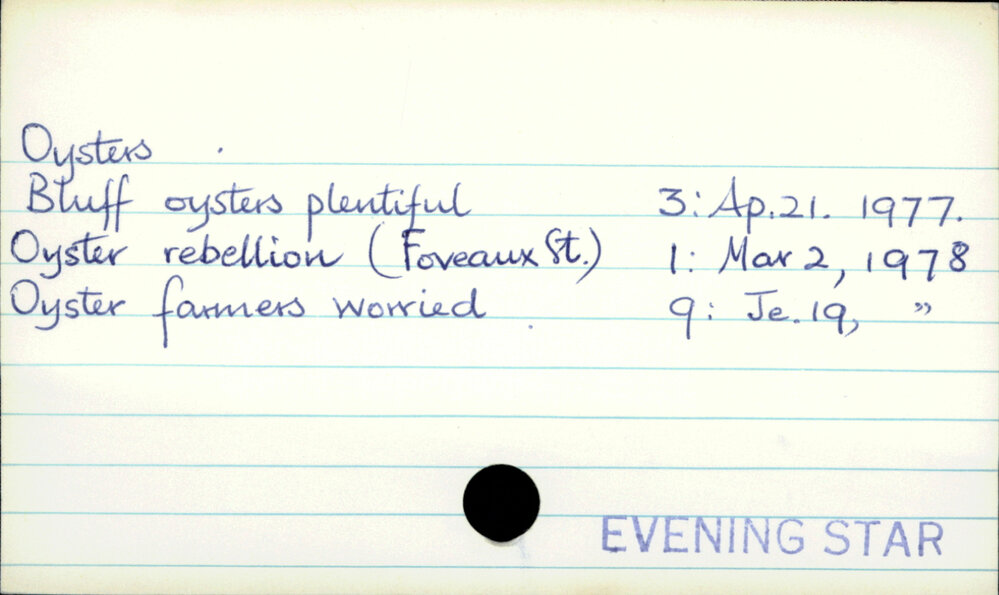 Oysters
Bluff oysters plentiful 3: Ap. 21. 1977.
Oyster rebellion (Foveaux St.) 1: Mar 2, 1978
Oyster farmers worried 9: Je. 19, "
EVENING STAR